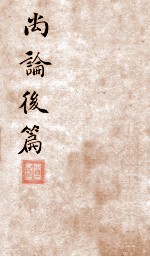 尚論後篇